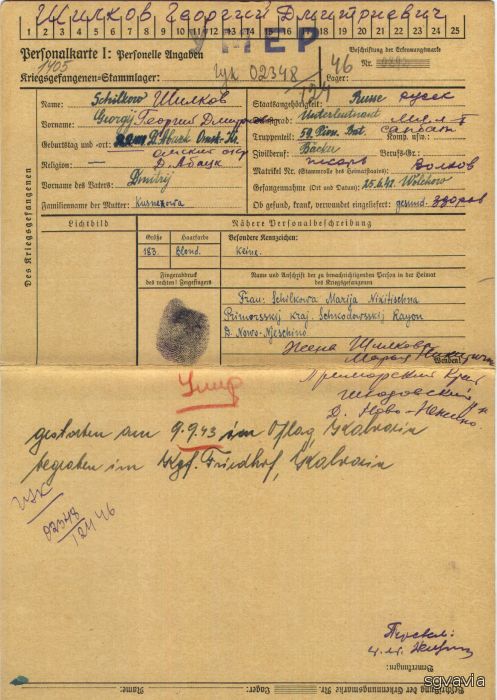 Шилков Георгий Дмитриевич
1 2 3 4 5 6 7 8 9 10 11 12 13 14 15 16 17 18 19 20 21 22 23 24 25
УМЕР
Personalkarte I: Personelle Angaben
Beschriftung der Erkennungsmarke
1405
Nr.
Kriegsgefangenen-Stammlager:
02348
46
Lager:
Des Kriegsgefangenen
Name: Schilkow Шилков
Vorname: Georgij Георгий
Geburtstag und -ort:
Д. Абацк
Religion: —
Vorname des Vaters: Dmitrij
Familienname der Mutter:
Staatsangehörigkeit: Russe русск
Dienstgrad: Unterleutnant
Truppenteil: 59. Pion. Bat. Komp. usw.:
Zivilberuf: Bäcker Berufs-Gr.:
Matrikel Nr. (Stammrolle des Heimatstaates):
пекарь Волхов
Gefangennahme (Ort und Datum): 25.6.42. Wolchow
Ob gesund, krank, verwundet eingeliefert: gesund. здоров
Lichtbild
Nähere Personalbeschreibung
Größe Haarfarbe Besondere Kennzeichen:
183. blond. Keine.
Fingerabdruck des rechten! Zeigefingers
Name und Anschrift der zu benachrichtigenden Person in der Heimat des Kriegsgefangenen
Frau: Schilkowa Marija Nikitischna
Primorsskij kraj. Schkodowsskij Rayon
D. Nowo-Njeschino
Жена Шилкова
Wenden!
Мария Никитична
Приморский Край
Шкодовский
Д. Ново-Нежино
Умер
gestorben am 9.9.43 im Oflag,
begraben im Kgf. Friedhof,
02348
124 46
Bemerkungen:
Beschriftung der Erkennungsmarke Nr.
Lager:
Name:
sgvavia